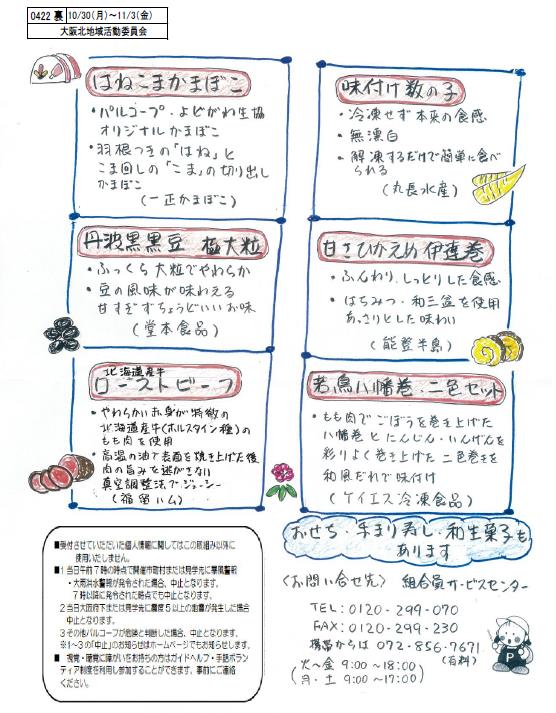 0422 裏 10/30(月)～11/3(金)
大阪北地域活動委員会
はねこまかまぼこ
・パルコープ・よどがわ生協
オリジナルかまぼこ
・羽根つきの「はね」と
こま回しの「こま」の切り出し
かまぼこ
(一正かまぼこ)
味付け数の子
・冷凍せず本来の食感
・無漂白
・解凍するだけで簡単に食べ
られる
(丸長水産)
丹波黒黒豆 極大粒
・ふっくら大粒でやわらか
・豆の風味が味わえる
甘すぎずちょうどいいお味
(堂本食品)
甘さひかえめ伊達巻
・ふんわり、しっとりした食感
・はちみつ・和三盆を使用
あっさりとした味わい
(能登半島)
北海道産牛
ローストビーフ
・やわらかい赤身が特徴の
北海道産牛(ホルスタイン種)の
もも肉を使用
・高温の油で表面を焼き上げた後
肉の旨みを逃がさない
真空調整法でジューシー
(福留ハム)
若鳥八幡巻・二色セット
・もも肉でごぼうを巻き上げた
八幡巻とにんじん・いんげんを
彩りよく巻き上げた二色巻きを
和風だれで味付け
(ケイエス冷凍食品)
おせち・手まり寿し・和生菓子も
あります
■受付させていただいた個人情報に関してはこの取組み以外に
使用いたしません。
■1 当日午前7時の時点で開催市町村または見学先に暴風警報
・大雨洪水警報が発令された場合、中止となります。
7時以降に発令された時点でも中止となります。
2 当日大阪府下または見学先に震度5以上の地震が発生した場合
中止となります。
3 その他パルコープが危険と判断した場合、中止となります。
※1～3の「中止」のお知らせはホームページでもお知らせします。
■ 視覚・聴覚に障がいをお持ちの方はガイドヘルプ・手話ボラン
ティア制度を利用し参加することができます。事前にご連絡
ください。
〈お問い合せ先〉 組合員サービスセンター
TEL:0120-299-070
FAX:0120-299-230
携帯からは 072-856-7671
(有料)
(火～金 9:00～18:00)
(月・土 9:00～17:00)
P